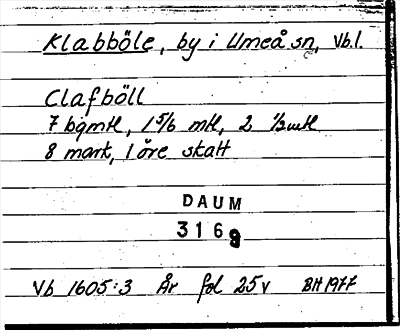 Klabböle, by i Umeå sn, Vb.l.
Clafböll
7 bgmtl, 1 5/6 mtl, 2 1/2mtl
8 mark, 1 öre skatt
DAUM
3168
Vb 1605:3 År fol 25v BH 1977